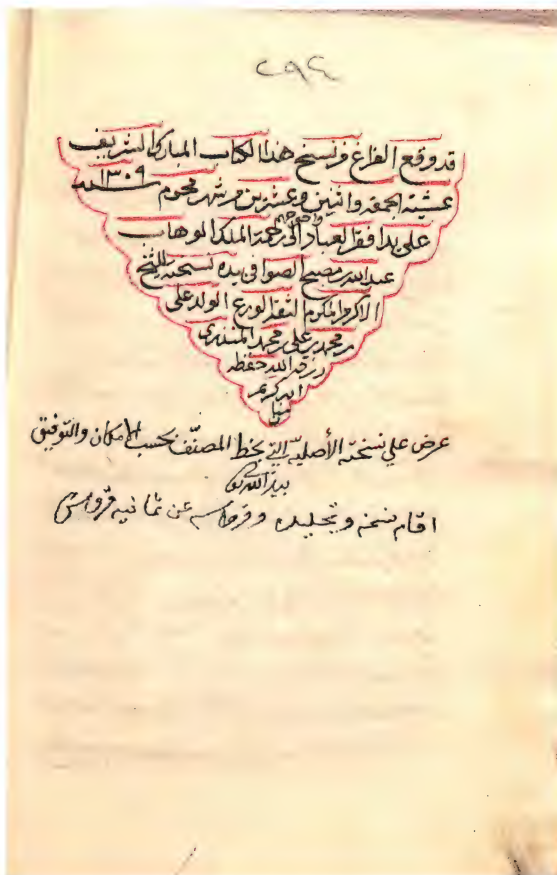 ٢٩٤
قد وقع الفراغ من نسخ هذا الكتاب المبارك الشريف
عشية الجمعة واثنين وعشرين من شهر محرم سنة ١٣٠٩
على يد افقر العباد واحوجهم الى رحمة الملك الوهاب
عبدالله مصبح الصوافي بيده نسخته للشيخ
الاكرم المكرم الثقة الورع الولد علي
بن محمد بن علي بن محمد المنذري
رزقه الله حفظه
انه كريم
منا
عرض على نسخته الأصلية التي بخط المصنف بحسب الامكان والتوفيق
بيد الله تعالى
نسخه وتجليده وقرطاسه عن ثمانية قروش